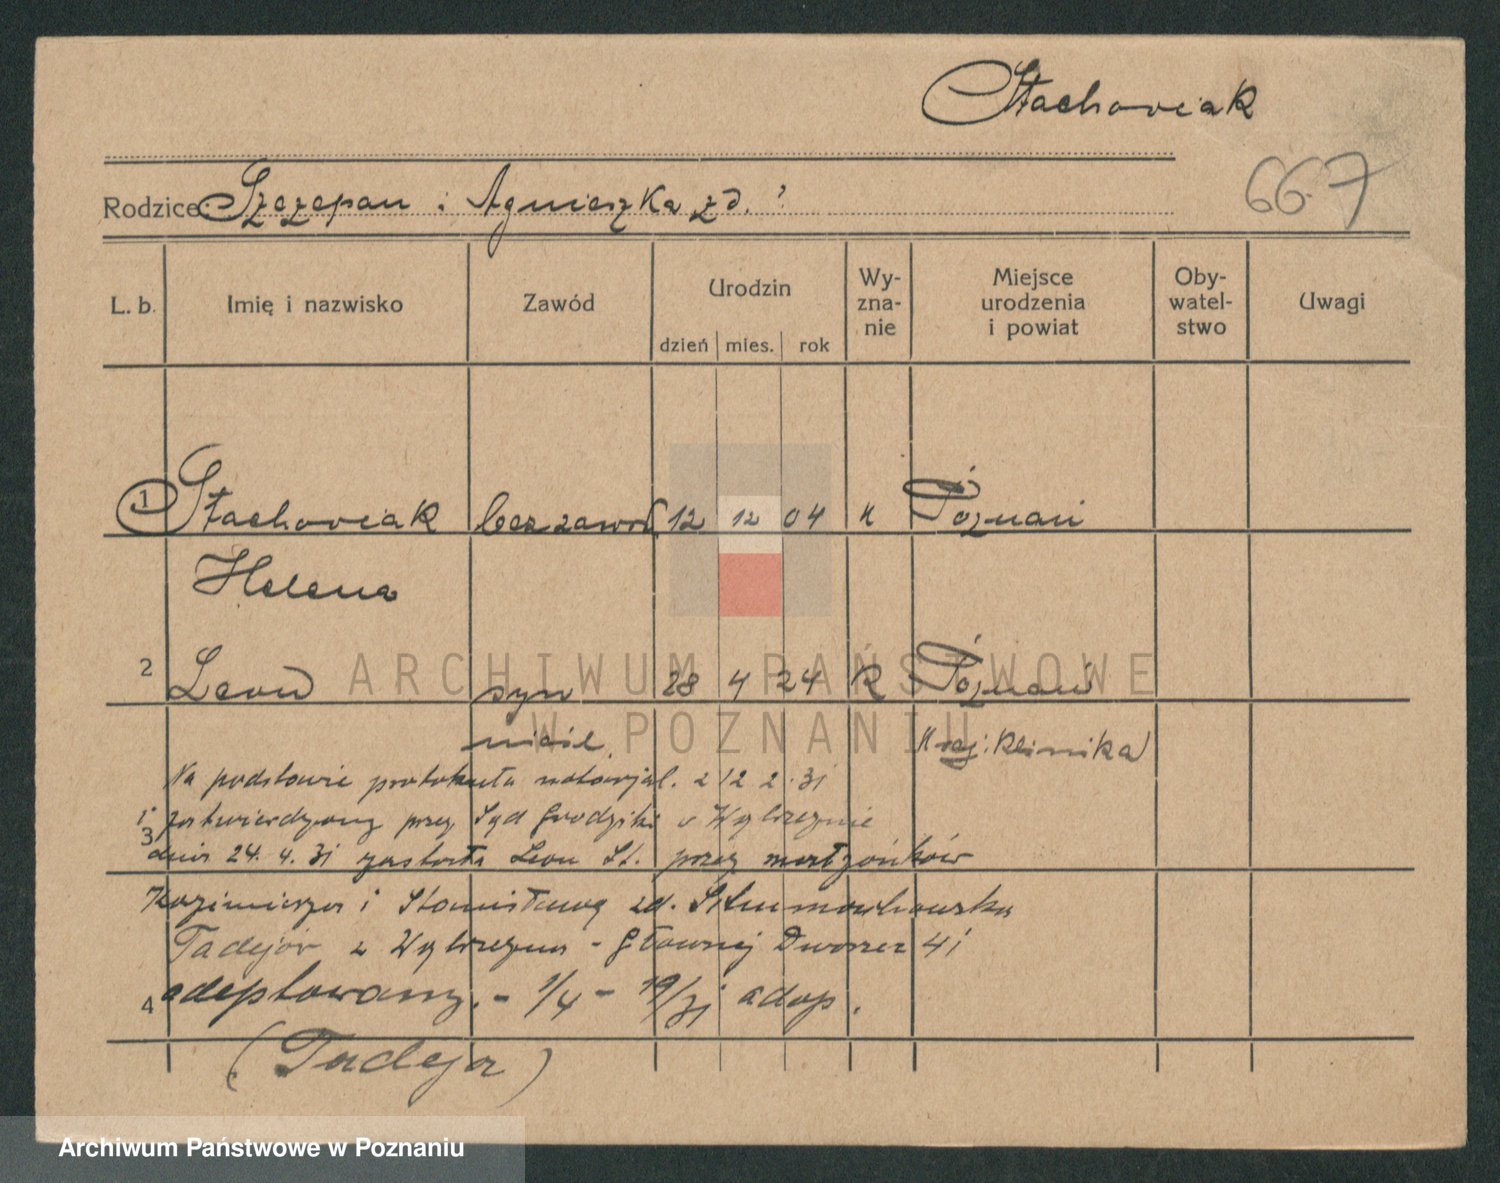 Stachowiak
667
Rodzice: Szczepan i Agnieszka zd. ?
L. b. Imię i nazwisko Zawód Urodzin dzień mies. rok Wy-zna-nie Miejsce urodzenia i powiat Oby-watel-stwo Uwagi
1 Stachowiak bez zawod. 12 12 04 K Poznań
Helena
2 Leon syn 28 4 24 R Poznań
nieśl. Kraj. Klinika
Na podstawie protokułu notarjal. z 12 2. 31
i potwierdzony przez Sąd Grodzki w Wąbrzeźnie
3
dnia 24. 4. 31 został Leon St. przez małżonków
Kazimierza i Stanisławę zd.
Tadejów z Wąbrzeźna - Dworzec
4 adoptowany. - 1/4 - 19/31 adop.
(Tadeja)
ARCHIWUM PAŃSTWOWE
W POZNANIU
Archiwum Państwowe w Poznaniu